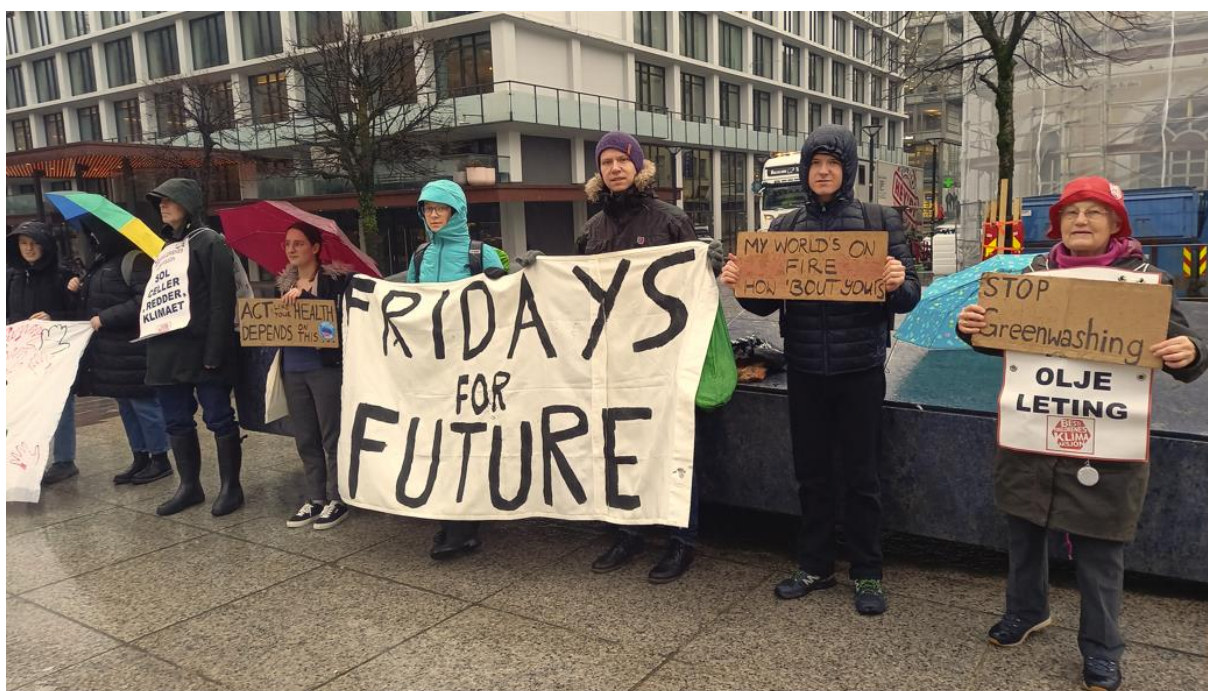 SOL
CELLER
REDDER
KLIMAET
ACT LIKE YOUR HEALTH
DEPENDS ON
THIS
FRIDAYS
FOR
FUTURE
MY WORLD'S ON
FIRE
HOW 'BOUT YOURS
STOP
Greenwashing
OLJE
LETING
BESTEFORELDRENES
KLIMA
AKSJON